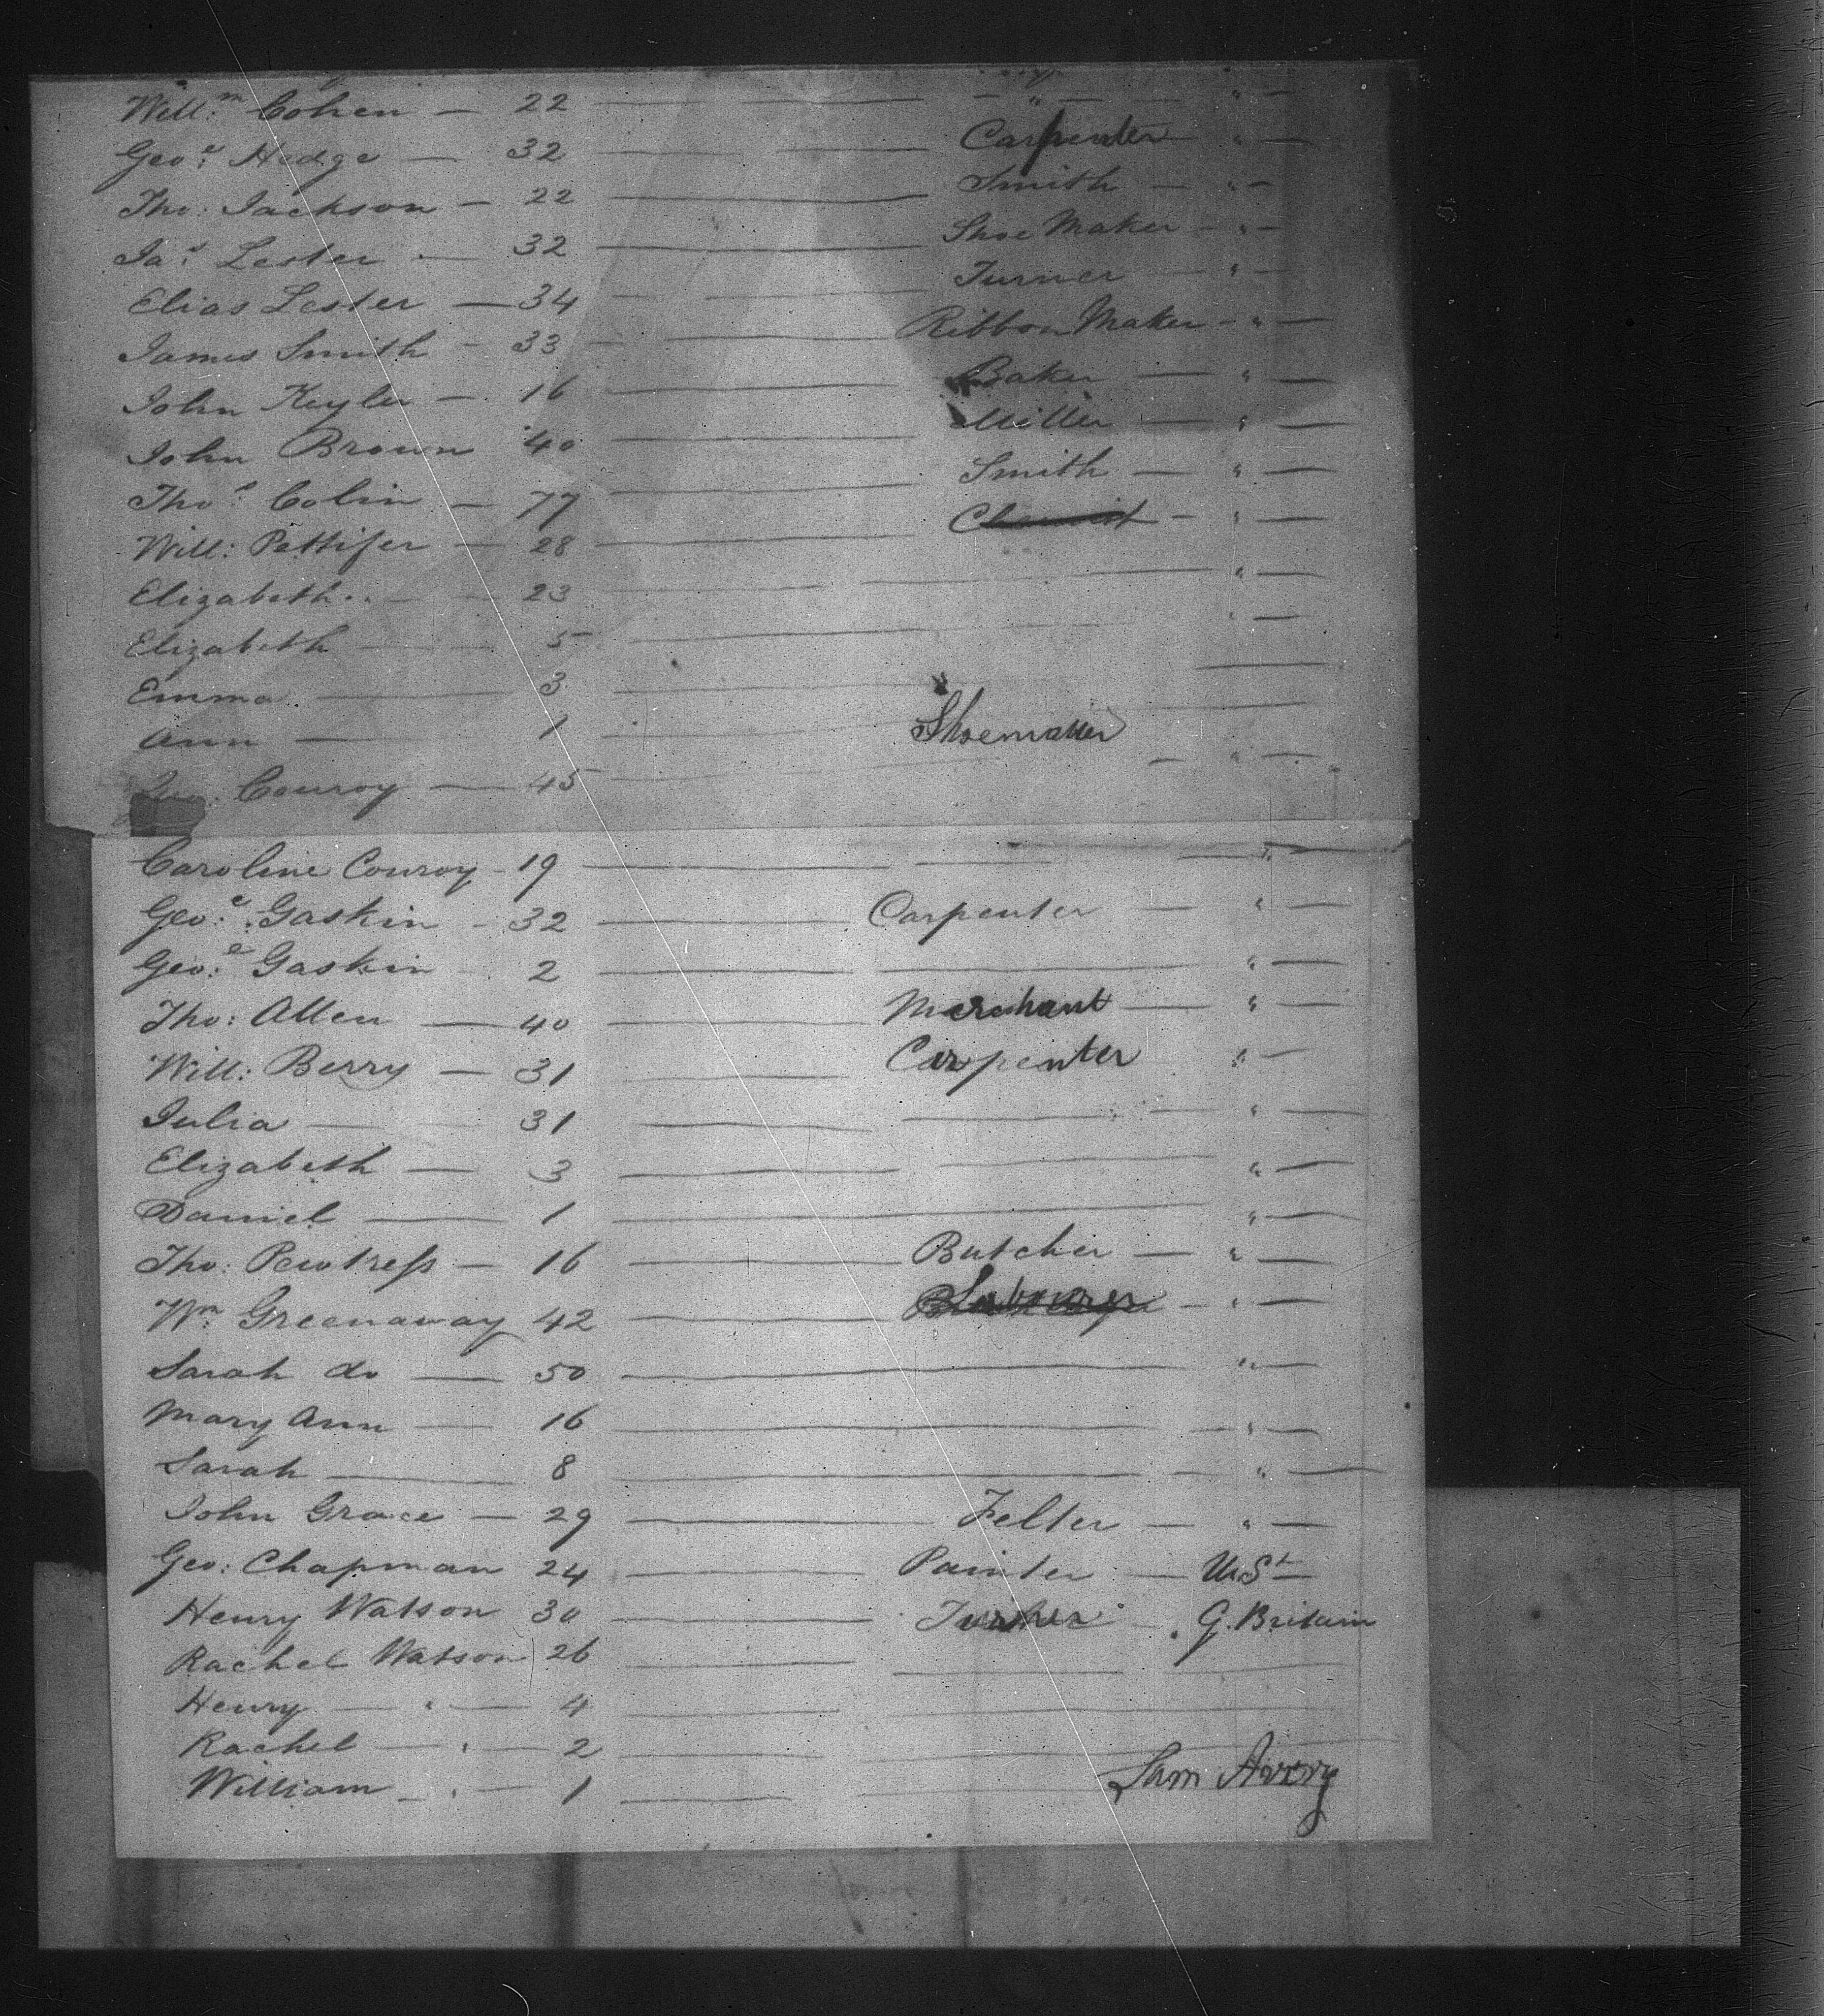 Will:m Cohen — 22 — " — "
Geo:e Hodge — 32 — Carpenter "
Tho: Jackson — 22 — Smith — "
Ja:s Lester — 32 — Shoe Maker — "
Elias Lester — 34 — Turner — "
James Smith — 33 — Ribbon Maker — "
John Keyler — 16 — Baker — "
John Brown 40 — Miller — "
Tho:s Colin — 77 — Smith — "
Will: Pettifer — 28 — "
Elizabeth — 23 — "
Elizabeth — 5 — "
Emma — 3 —
Ann — 1 —
Conroy — 45 — Shoemaker — "
Caroline Conroy - 19 — "
Geo:e Gaskin - 32 — Carpenter — "
Geo:e Gaskin 2 — "
Tho: Allen — 40 — Merchant — "
Will: Berry — 31 — Carpenter "
Julia — 31 — "
Elizabeth — 3 — "
Daniel — 1 — "
Tho: Pewtress — 16 — Butcher — "
Wm Greenaway 42 — Labourer — "
Sarah do — 50 — "
Mary Ann — 16 — "
Sarah — 8 — "
John Grace — 29 — Felter — "
Geo: Chapman 24 — Painter — U.St
Henry Watson 30 — G. Britain
Rachel Watson 26 —
Henry — " — 4 —
Rachel — " — 2 —
William — " — 1 —
Sam Avery